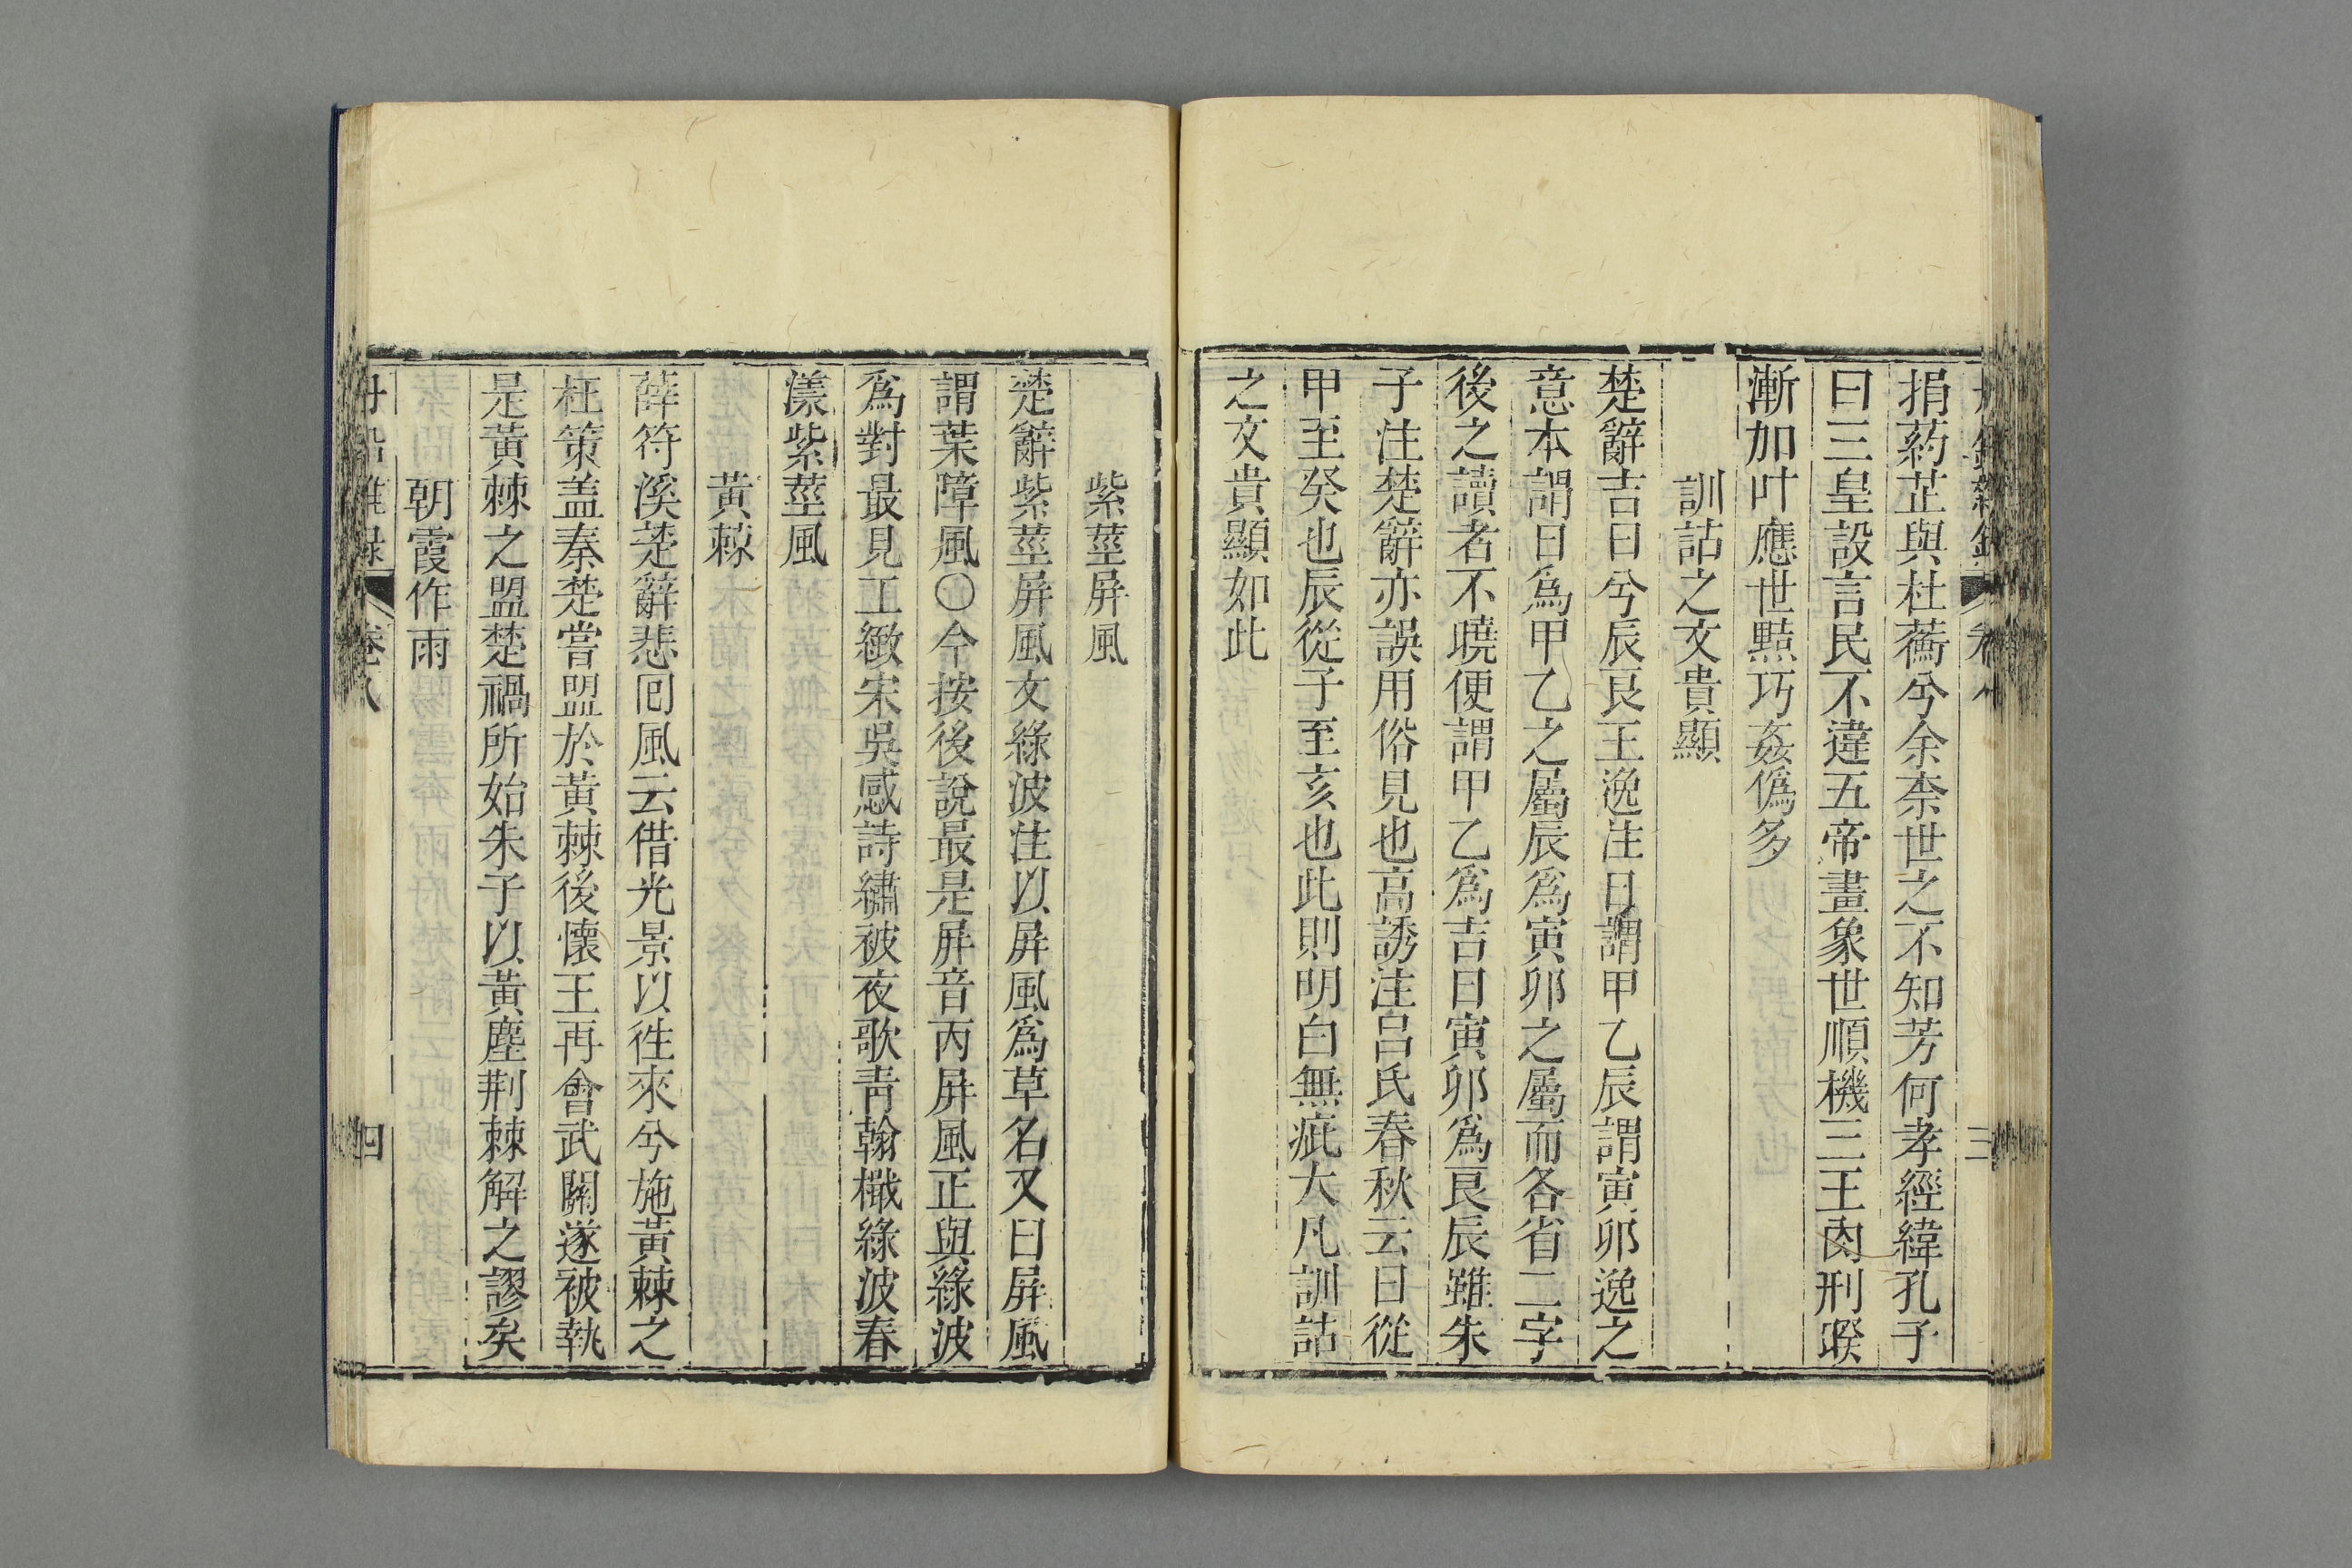 捐葯芷與杜蘅兮余柰世之不知芳何孝經緯孔子
曰三皇設言民不違五帝畫象世順機三王肉刑揆
漸加叶應世黠巧姦偽多
訓詁之文貴顯
楚辭吉日兮辰良王逸注日謂甲乙辰謂寅卯逸之
意本謂日爲甲乙之屬辰爲寅卯之屬而各省二字
後之讀者不曉便謂甲乙爲吉日寅卯爲良辰雖朱
子注楚辭亦誤用俗見也高誘注呂氏春秋云日從
甲至癸也辰從子至亥也此則明白無疵大凡訓詁
之文貴顯如此
紫莖屏風
楚辭紫莖屏風文綠波注以屏風爲草名又曰屏風
謂葉障風〇今按後說最是屏音丙屏風正與綠波
爲對最見工緻宋吳感詩繡被夜歌青翰檝綠波春
漾紫莖風
黃棘
薛符溪楚辭悲囘風云借光景以徃來兮施黃棘之
枉策盖秦楚嘗盟於黃棘後懷王再會武關遂被執
是黃棘之盟楚禍所始朱子以黃塵荆棘解之謬矣
朝霞作雨
卷八
四